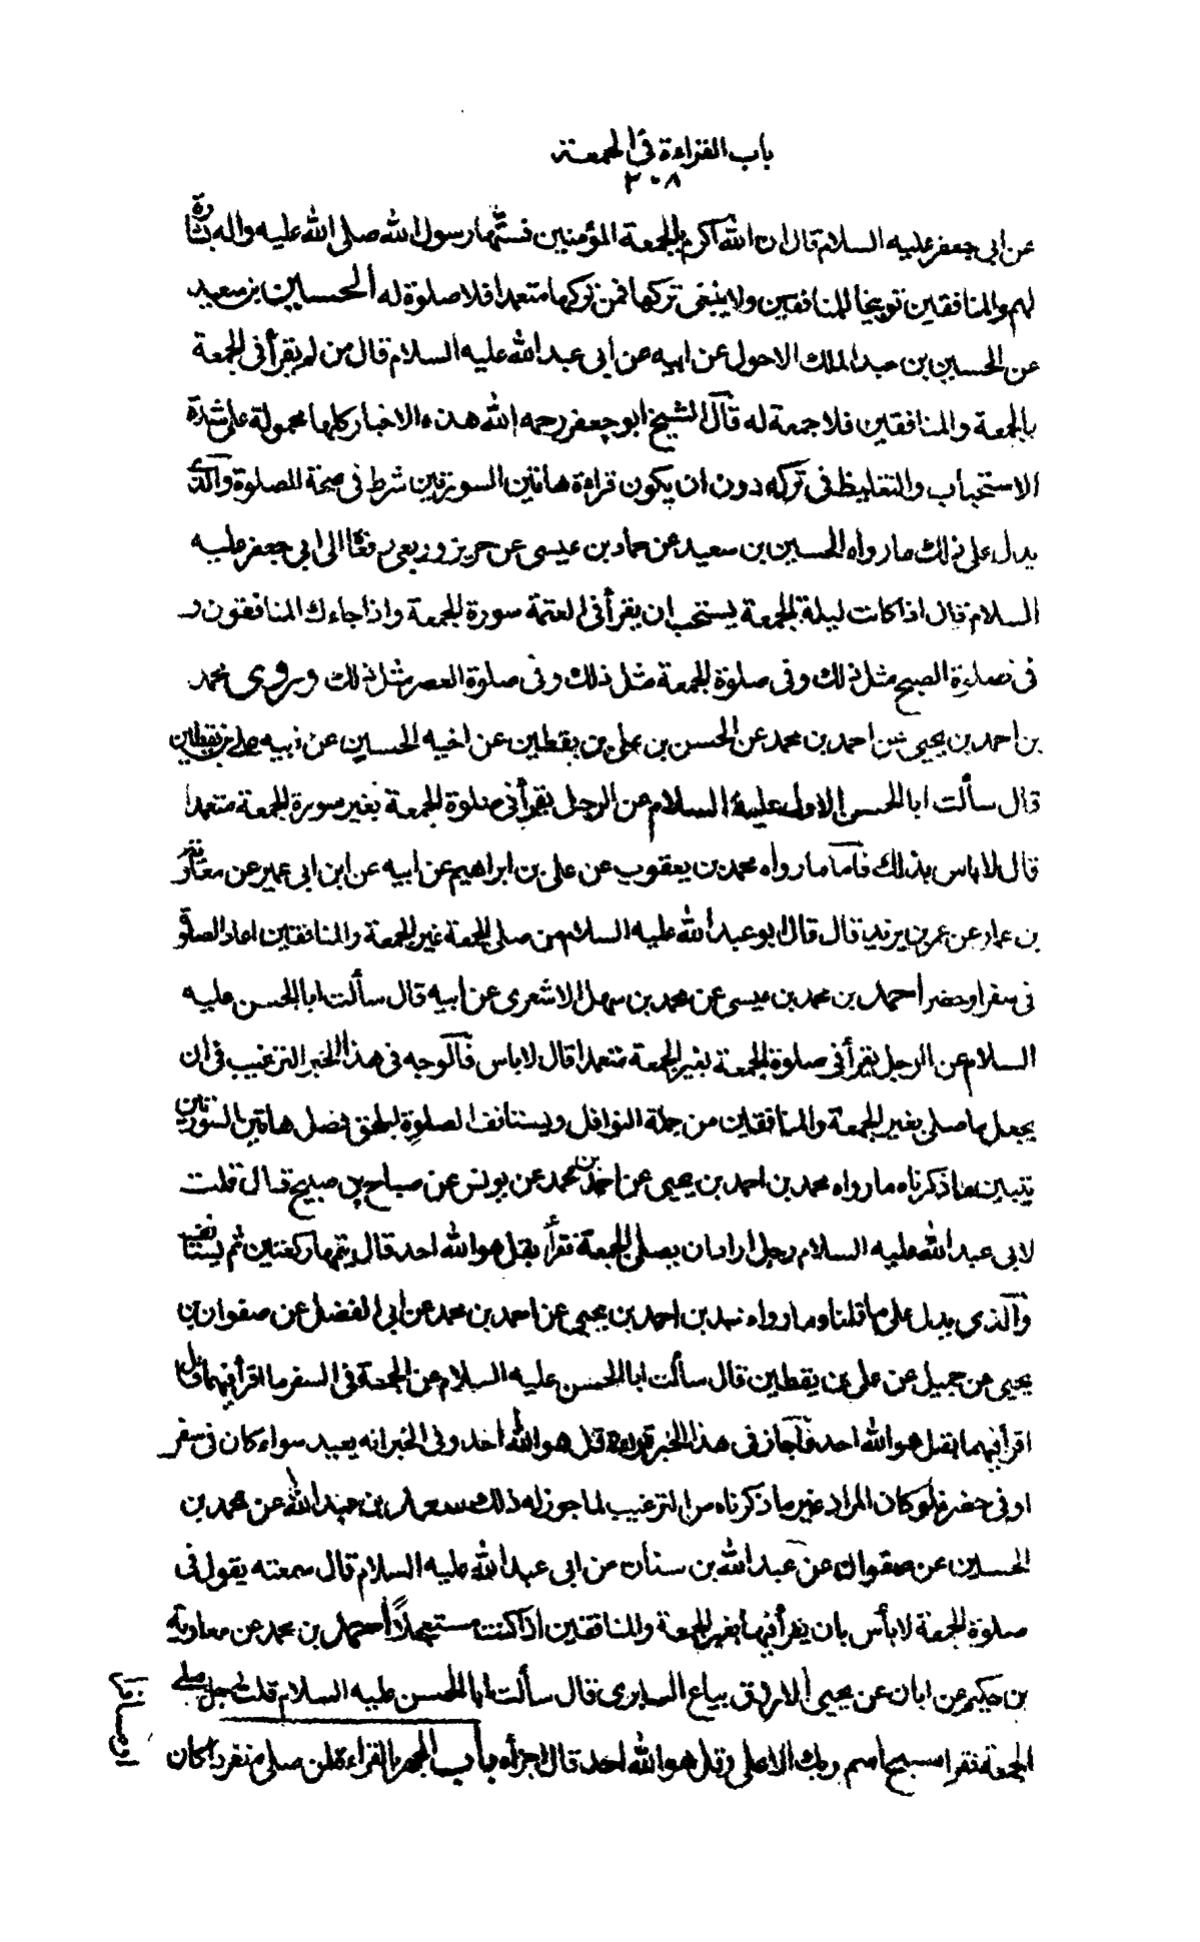 باب القراءة في الجمعة
٢٠٨
عن ابى جعفر عليه السلام قال ان الله اكرم بالجمعة المؤمنين فسنّها رسول الله صلى الله عليه واله بشارة
لهم والمنافقين توبيخا للمنافقين ولا ينبغى تركها فمن تركها متعمدا فلا صلوة له الحسين بن سعيد
عن الحسين بن عبد الملك الاحول عن ابيه عن ابى عبد الله عليه السلام قال من لم يقرأ فى الجمعة
بالجمعة والمنافقين فلا جمعة له قال الشيخ ابو جعفر رحمه الله هذه الاخبار كلها محمولة على شدة
الاستحباب والتغليظ فى تركه دون ان يكون قراءة هاتين السورتين شرط فى صحة الصلوة والذى
يدل على ذلك ما رواه الحسين بن سعيد عن حماد بن عيسى عن حريز وربعى رفعاه الى ابى جعفر عليه
السلام قال اذا كانت ليلة الجمعة يستحب ان يقرأ فى العتمة سورة الجمعة واذا جاءك المنافقون و
فى صلوة الصبح مثل ذلك وفى صلوة الجمعة مثل ذلك وفى صلوة العصر مثل ذلك وروى محمد
بن احمد بن يحيى عن احمد بن محمد عن الحسن بن على بن يقطين عن اخيه الحسين عن ابيه على بن يقطين
قال سألت ابا الحسن الاول عليه السلام عن الرجل يقرأ فى صلوة الجمعة بغير سورة الجمعة متعمدا
قال لا باس بذلك فاما ما رواه محمد بن يعقوب عن على بن ابراهيم عن ابيه عن ابن ابى عمير عن معاوية
بن عمار عن عمر بن يزيد قال قال ابو عبد الله عليه السلام من صلى الجمعة بغير الجمعة والمنافقين اعاد الصلوة
فى سفر او حضر احمد بن محمد بن عيسى عن محمد بن سهل الاشعرى عن ابيه قال سألت ابا الحسن عليه
السلام عن الرجل يقرأ فى صلوة الجمعة بغير الجمعة متعمدا قال لا باس فالوجه فى هذا الخبر الترغيب فى ان
يجعل ما صلى بغير الجمعة والمنافقين من جملة النوافل ويستانف الصلوة ليلحق فضل هاتين السورتين
يبين ما ذكرناه ما رواه محمد بن احمد بن يحيى عن احمد بن محمد عن يونس عن صباح بن صبيح قال قلت
لابى عبد الله عليه السلام رجل اراد ان يصلى الجمعة فقرأ بقل هو الله احد قال يتمها ركعتين ثم يستانف
والذى يدل على ما قلناه ما رواه محمد بن احمد بن يحيى عن احمد بن محمد عن ابى الفضل عن صفوان بن
يحيى عن جميل عن على بن يقطين قال سألت ابا الحسن عليه السلام عن الجمعة فى السفر ما اقرأ فيهما قال
اقرأ فيهما بقل هو الله احد فاجاز فى هذا الخبر قراءة قل هو الله احد وفى الخبر انه يعيد سواء كان فى سفر
او فى حضر فلو كان المراد غير ما ذكرناه من الترغيب لما جوز له ذلك سعد بن عبد الله عن محمد بن
الحسين عن صفوان عن عبد الله بن سنان عن ابى عبد الله عليه السلام قال سمعته يقول فى
صلوة الجمعة لا بأس بان يقرأ فيها بغير الجمعة والمنافقين اذا كنت مستعجلاً احمد بن محمد عن معاوية
بن حكيم عن ابان عن يحيى الازرق بياع السابرى قال سألت ابا الحسن عليه السلام قلت رجل صلى
الجمعة فقرا سبح اسم ربك الاعلى وقل هو الله احد قال اجزأه باب الجهر بالقراءة لمن صلى منفردا كان